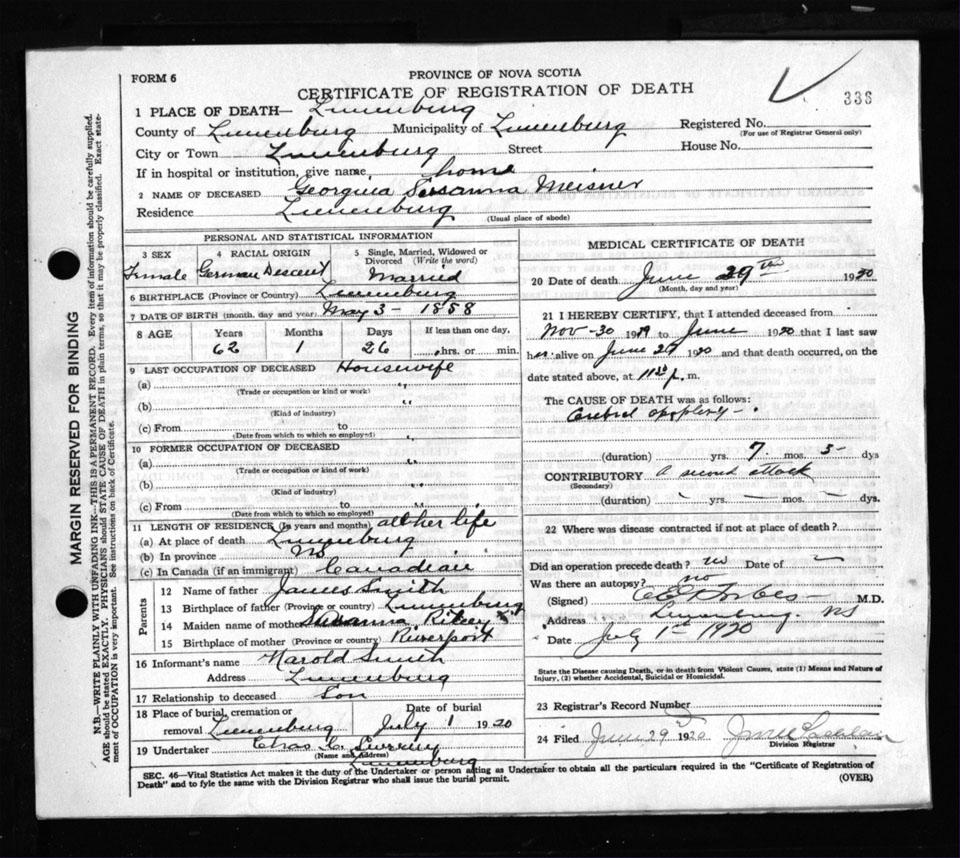 FORM 6
PROVINCE OF NOVA SCOTIA
CERTIFICATE OF REGISTRATION OF DEATH
338
1 PLACE OF DEATH— Lunenburg
County of Lunenburg Municipality of Lunenburg Registered No.
(For use of Registrar General only)
City or Town Lunenburg Street House No.
If in hospital or institution, give name home
2 NAME OF DECEASED Georginia Susanna Meisner
Residence Lunenburg
(Usual place of abode)
PERSONAL AND STATISTICAL INFORMATION
3 SEX Female
4 RACIAL ORIGIN German Descent
5 Single, Married, Widowed or Divorced (Write the word) Married
6 BIRTHPLACE (Province or Country) Lunenburg
7 DATE OF BIRTH (month, day and year) May 3 - 1858
8 AGE Years Months Days If less than one day,
62 1 26 hrs. or min.
9 LAST OCCUPATION OF DECEASED Housewife
(a) "
(Trade or occupation or kind or work)
(b) "
(Kind of industry)
(c) From to "
(Date from which to which so employed)
10 FORMER OCCUPATION OF DECEASED
(a) "
(Trade or occupation or kind of work)
(b) "
(Kind of industry)
(c) From to
(Date from which to which so employed)
11 LENGTH OF RESIDENCE (In years and months) all her life
(a) At place of death Lunenburg
(b) In province NS
(c) In Canada (if an immigrant) Canadian
Parents
12 Name of father James Smith
13 Birthplace of father (Province or country) Lunenburg
14 Maiden name of mother Susanna
15 Birthplace of mother (Province or country) Riverport
16 Informant's name Harold Smith
Address Lunenburg
17 Relationship to deceased Son
18 Place of burial, cremation or Date of burial
removal Lunenburg July 1 1920
19 Undertaker Chas
(Name and Address)
Lunenburg
MEDICAL CERTIFICATE OF DEATH
20 Date of death June 29th 1920
(Month, day and year)
21 I HEREBY CERTIFY, that I attended deceased from
Nov-30 1919 to June 1920 that I last saw
her alive on June 29 1920 and that death occurred, on the
date stated above, at p. m.
The CAUSE OF DEATH was as follows:
Cerebral apoplexy
(duration) yrs. 7 mos. 5 dys
CONTRIBUTORY a second attack
(Secondary)
(duration) yrs. mos. dys.
22 Where was disease contracted if not at place of death?
Did an operation precede death? no Date of
Was there an autopsy? no
(Signed) M.D.
Address Lunenburg NS
Date July 1st 1920
State the Disease causing Death, or in death from Violent Causes, state (1) Means and Nature of
Injury, (2) whether Accidental, Suicidal or Homicidal.
23 Registrar's Record Number
24 Filed June 29 1920
Division Registrar
SEC. 46—Vital Statistics Act makes it the duty of the Undertaker or person acting as Undertaker to obtain all the particulars required in the "Certificate of Registration of
Death" and to fyle the same with the Division Registrar who shall issue the burial permit. (OVER)
MARGIN RESERVED FOR BINDING
N.B.—WRITE PLAINLY WITH UNFADING INK—THIS IS A PERMANENT RECORD. Every item of information should be carefully supplied.
AGE should be stated EXACTLY. PHYSICIANS should STATE CAUSE OF DEATH in plain terms, so that it may be properly classified. Exact state-
ment of OCCUPATION is very important. See instructions on back of Certificate.